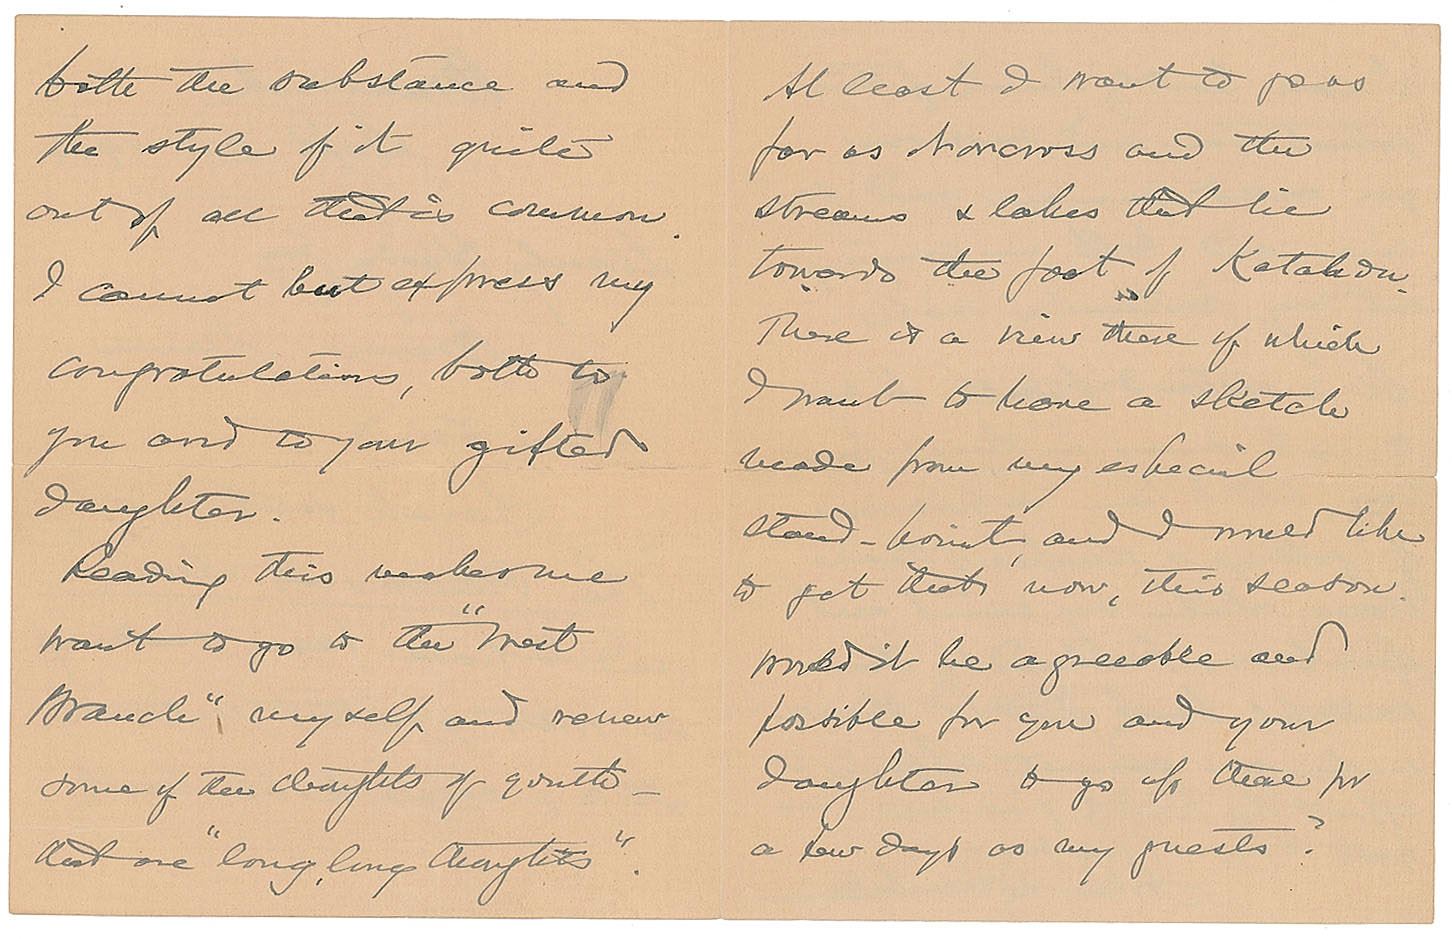 both the substance and
the style of it quite
out of all that is common.
I cannot but express my
congratulations, both to
you and to your gifted
daughter.
Reading this makes me
want to go to the "West
Branch" myself and renew
some of the thoughts of youth –
that are "long, long thoughts".
At least I want to go as
far as Norcross and the
streams & lakes that lie
towards the foot of Katahdin.
There is a view there of which
I want to have a sketch
made from my especial
stand-point, and I would like
to get that now, this season.
Would it be agreeable and
possible for you and your
daughter to go up there for
a few days as my guests?